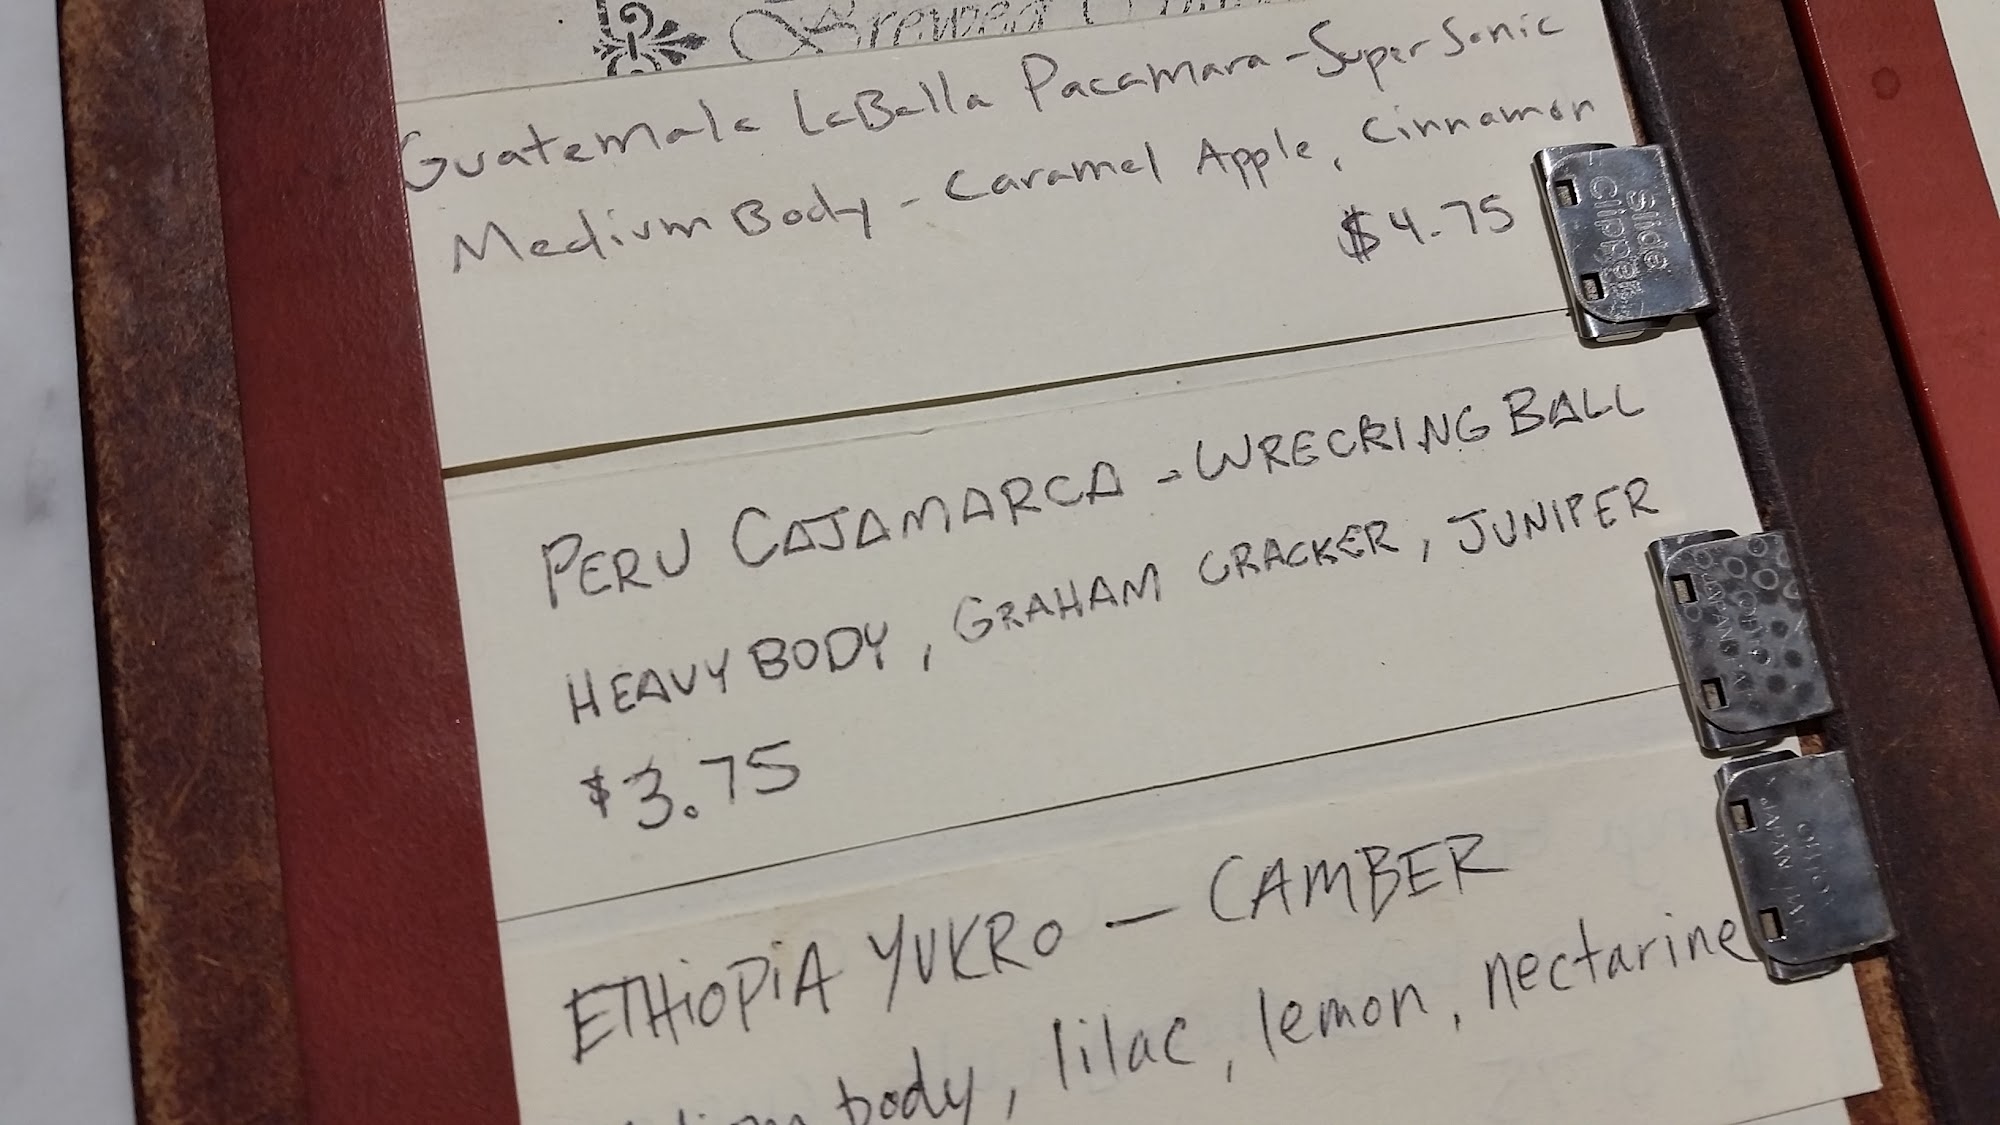 Brewed
Guatemala LaBella Pacamara - Super Sonic
Medium Body - Caramel Apple, Cinnamon
$4.75
Slide
Clipper
PERU CAJAMARCA - WRECKING BALL
HEAVY BODY, GRAHAM CRACKER, JUNIPER
$3.75
OHTO
JAPAN
ETHIOPIA YUKRO - CAMBER
body, lilac, lemon, nectarine
OHTO
JAPAN